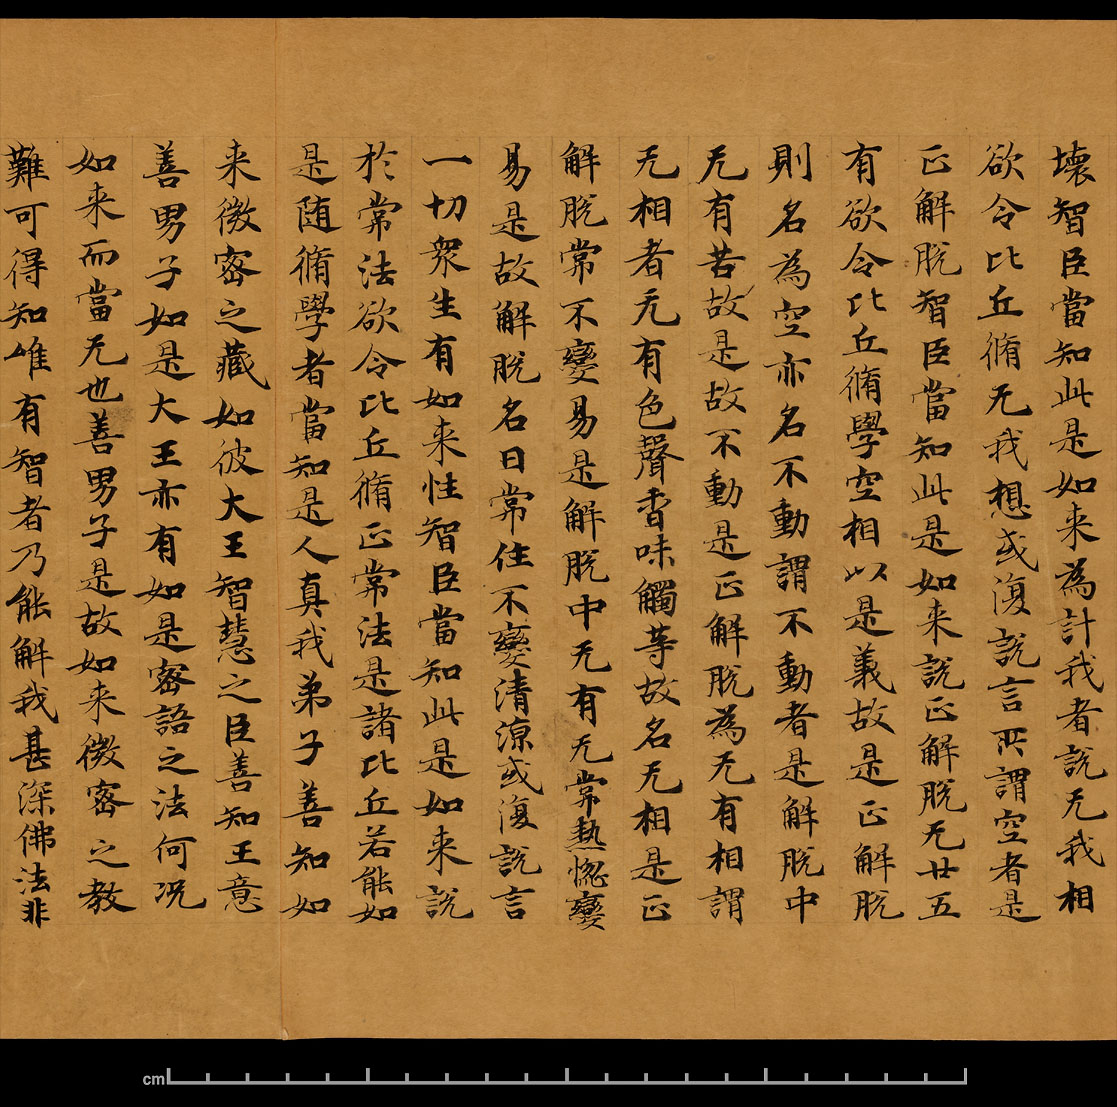 壊智臣當知此是如来為計我者說无我相
欲令比丘脩无我想或復說言所謂空者是
正解脫智臣當知此是如来說正解脫无廿五
有欲令比丘脩學空相以是義故是正解脫
則名為空亦名不動謂不動者是解脫中
无有苦故是故不動是正解脫為无有相謂
无相者无有色聲香味觸等故名无相是正
解脫常不變易是解脫中无有无常熱惚變
易是故解脫名曰常住不變清涼或復說言
一切衆生有如来性智臣當知此是如来說
於常法欲令比丘脩正常法是諸比丘若能如
是随脩學者當知是人真我弟子善知如
来微密之藏如彼大王智慧之臣善知王意
善男子如是大王亦有如是密語之法何况
如来而當无也善男子是故如来微密之教
難可得知唯有智者乃能解我甚深佛法非